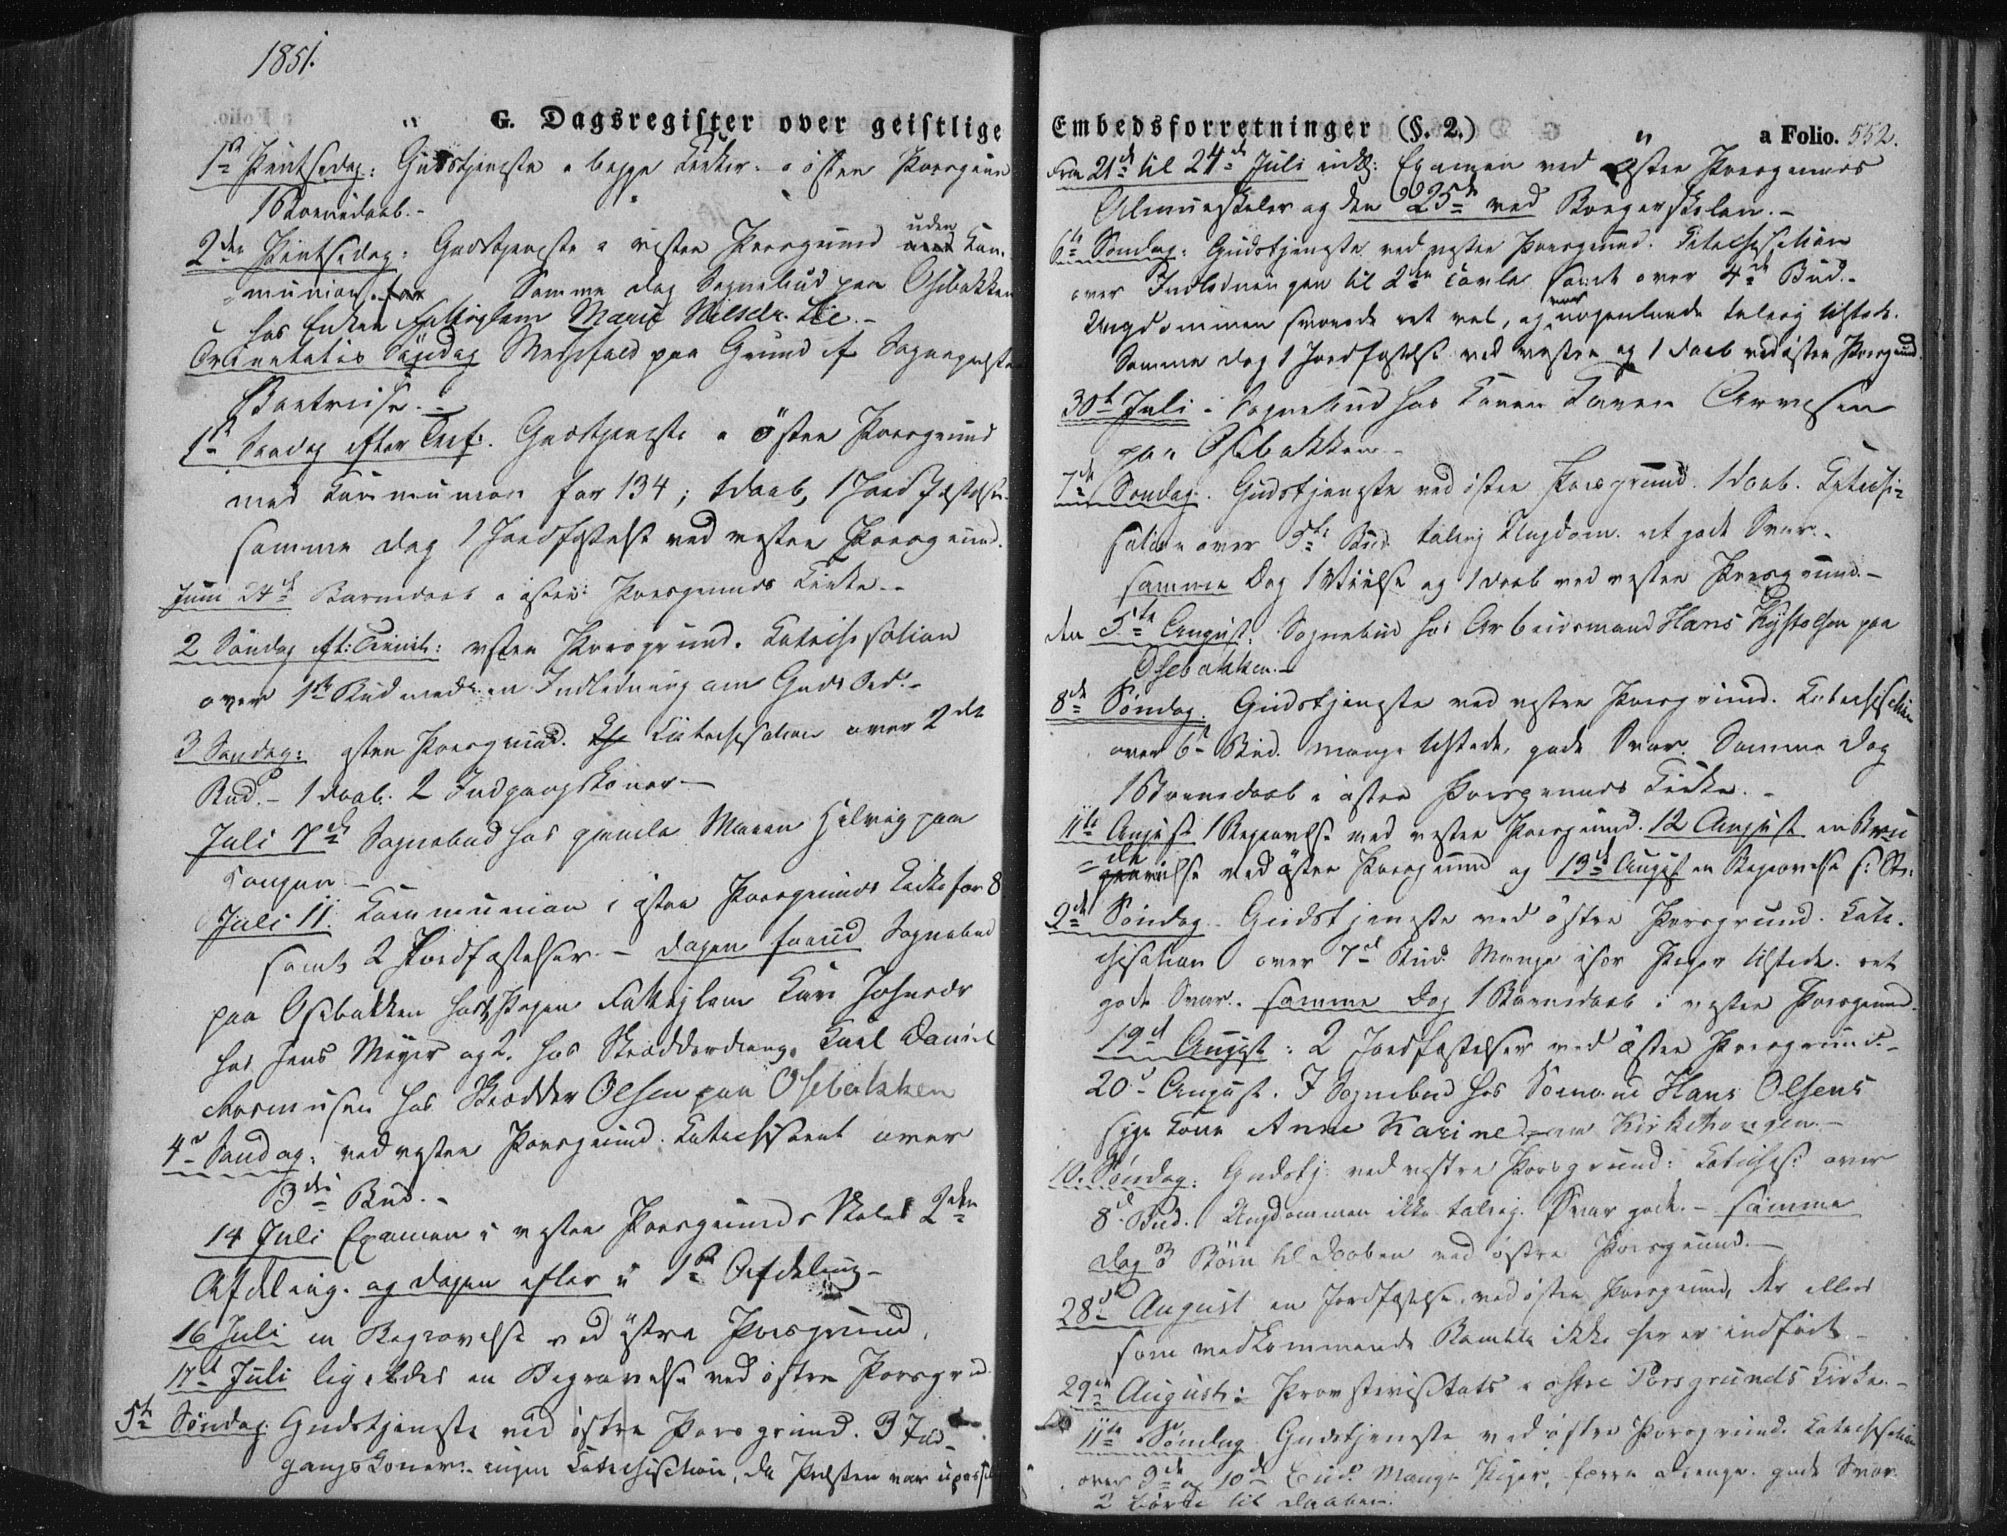 1851.
G. Dagsregister over geistlige
1ste Pintsedag: Gudstjeneste i begge Kirker. i østre Porsgrund
1 Barnedaab. -
2den Pintsedag: Gudstjeneste i vestre Porsgrund uden Kom-
munion. Samme dag Sognebud paa Osebakken
hos Enken Fattiglem Marie Nilsdr. Lie. -
Trinitatis Søndag Messefald paa Grund af Sognepræstens
1ste Søndag efter Tref: Gudstjeneste i østre Porsgrund
med Communion for 134; 1 daab, 1 Jordfæstelse.
samme dag 1 Jordfæstelse ved vestre Porsgrund.
Juni 24d Barnedaab i østre Porsgrunds Kirke. -
2 Søndag eft: Trinit: vestre Porsgrund. Katechisation
over 1ste Bud med en Indledning om Guds Ord. -
3 Søndag: østre Porsgrund. Katechisation over 2det
Bud. - 1 daab. 2 Indgangskoner. -
Juli 7de Sognebud hos gamle Maren Helvig paa
Juli 11. Kommunion i østre Porsgrunds Kirke for 8
samt 2 Jordfæstelser. - dagen forud Sognebud
paa Osebakken hos Pigen Fattiglem Kari Johnsdr
hos Jens Meyer og 2. hos Skrædderdreng Carl Daniel
Rasmusen hos Skrædder Olsen paa Osebakken
4de Søndag: ved vestre Porsgrund. Katechiseret over
3die Bud. -
14 Juli Examen i vestre Porsgrunds Skoles 2den
Afdeling. og dagen efter i 1ste Afdeling -
16 Juli en Begravelse ved østre Porsgrund.
17d Juli ligeledes en Begravelse ved østre Porsgrd
5te Søndag: Gudstjeneste ved østre Porsgrund. 3 Ind-
gangskoner. - ingen Katechisation, da Præsten var
Embedsforretninger (§. 2.)
a Folio. 552.
Fra 21d til 24d Juli inkl: Examen ved østre Porsgrunds
Almueskoler og den 25de ved Borgerskolen. -
6te Søndag: Gudstjeneste ved vestre Porsgrund. Katechisation
over Indledningen til 2den Tavle samt over 4de Bud. -
Ungdommen svarede ret vel, og var nogenlunde talrig tilstede.
Samme dag 1 Jordfæstelse ved vestre og 1 daab ved østre Porsgrund.
30te Juli i Sognebud hos Konen Karen Arvesen
paa Osebakken. -
7de Søndag: Gudstjeneste ved østre Porsgrund. 1 daab. Katechi-
sation over 5te Bud. talrig Ungdom. ret gode Svar. -
samme Dag 1 Vielse og 1 daab ved vestre Porsgrund. -
den 5te August: Sognebud hos Arbeidsmand Hans Kystolsen paa
Osebakken. -
8de Søndag: Gudstjeneste ved vestre Porsgrund. Katechisation
over 6te Bud. mange tilstede, gode Svar. Samme Dag
1 Barnedaab i østre Porsgrunds Kirke. -
11te August 1 Begravelse ved vestre Porsgrund. 12 August en Bru
devielse ved østre Porsgrund og 13d August en Begravelse
9de Søndag. Gudstjeneste ved østre Porsgrund. Kate-
chisation over 7de Bud. Mange især Piger tilstede. ret
gode Svar. samme Dag 1 Barnedaab i vestre Porsgrund.
19d August: 2 Jordfæstelser ved østre Porsgrund. -
20d August. I Sognebud hos Sømand Hans Olsens
syge Kone Anne Karine paa Kirketangen. -
10. Søndag: Gudstj: ved vestre Porsgrund: Katechis: over
8d Bud. Ungdommen ikke talrig. Svar gode. - samme
dag 3 Børn til Daaben ved østre Porsgrund. -
28d August en Jordfæstelse ved østre Porsgrund, der ellers
som vedkommende Bamble ikke her er indført. -
29de August: Provstevisitats i østre Porsgrunds Kirke. -
11te Søndag Gudstjeneste ved østre Porsgrund. Katechisation
over 9de og 10de Bud. Mange Piger, færre Drenge. gode Svar
2 Børn til Daaben.